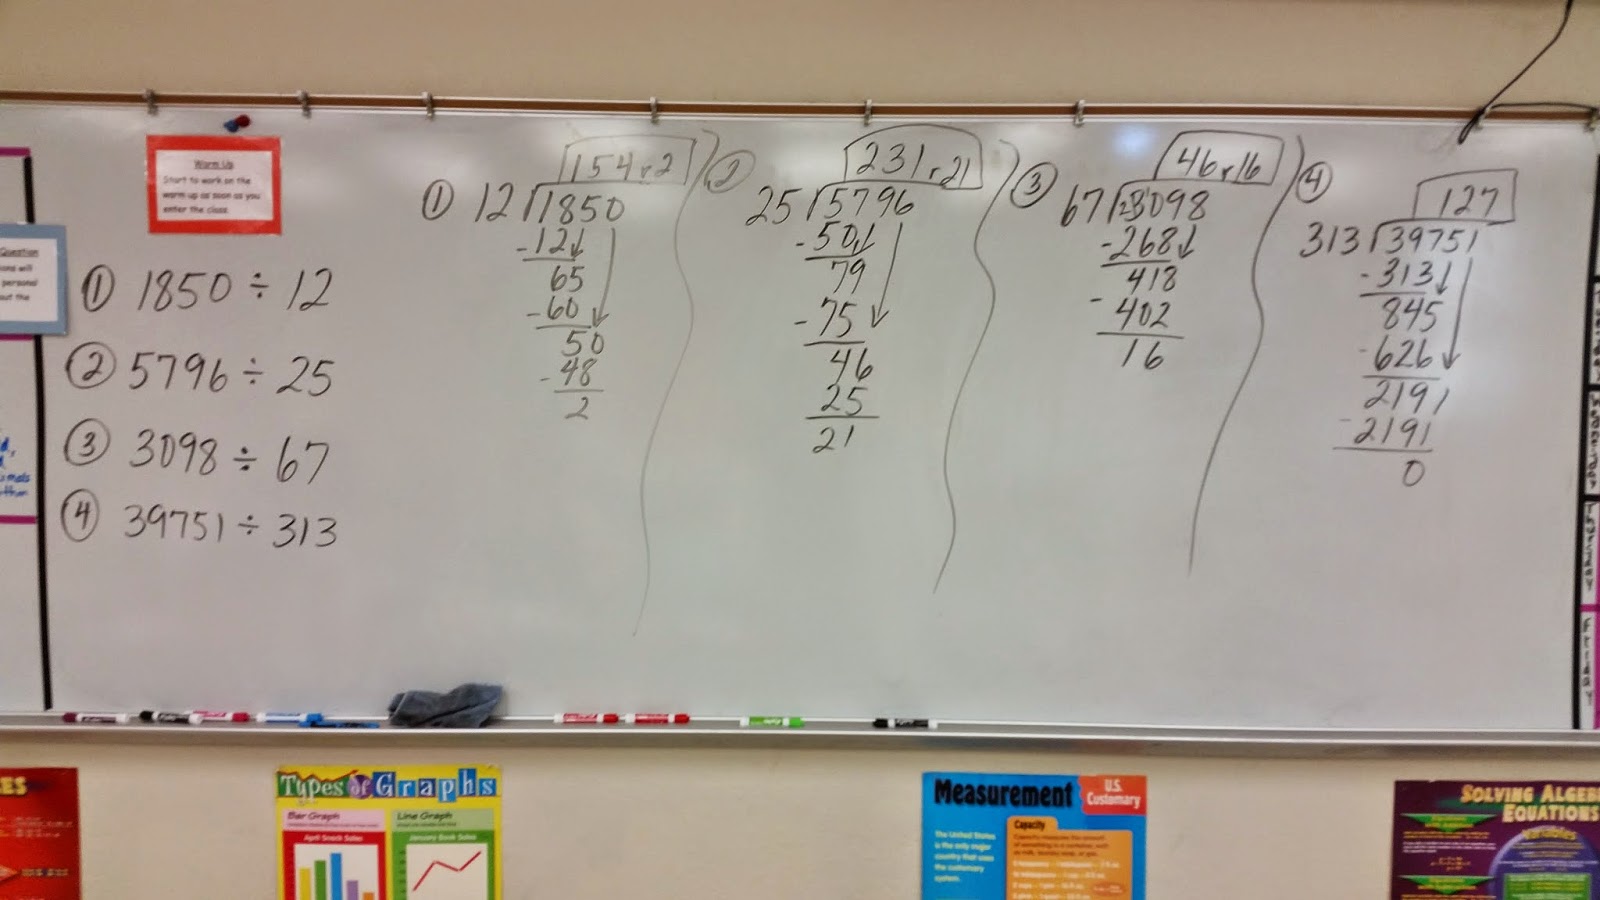 Warm Up
Start to work on the
warm up as soon as you
enter the class.
Question
ons will
personal
out the
① 1850 ÷ 12
② 5796 ÷ 25
③ 3098 ÷ 67
④ 39751 ÷ 313
① 154 r 2
12 1850
-12
65
-60
50
-48
2
② 231 r 21
25 5796
-50
79
-75
46
25
21
③ 46 r 16
67 3098
-268
418
-402
16
④ 127
313 39751
-313
845
-626
2191
-2191
0
Thursday
Friday
Types of Graphs
Bar Graph
Line Graph
April Snack Sales
January Book Sales
Measurement
U.S.
Customary
The United States
is the only major
country that uses
the customary
system.
Capacity
SOLVING ALGEB
EQUATIONS
Variables